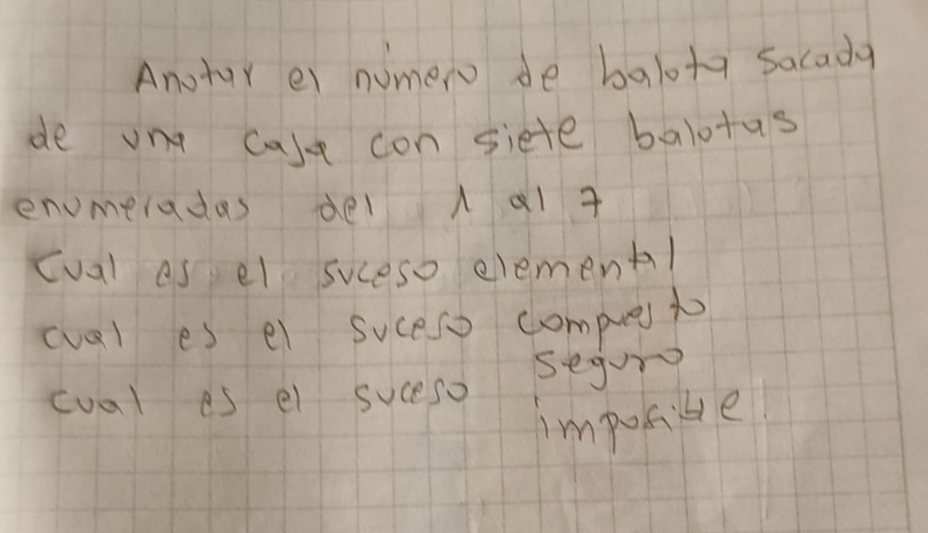 Anotar el número de balota sacada
de una caja con siete balotas
enumeradas del 1 al 7
Cual es el suceso elemental
cual es el suceso compuesto
seguro
cual es el suceso
imposible.